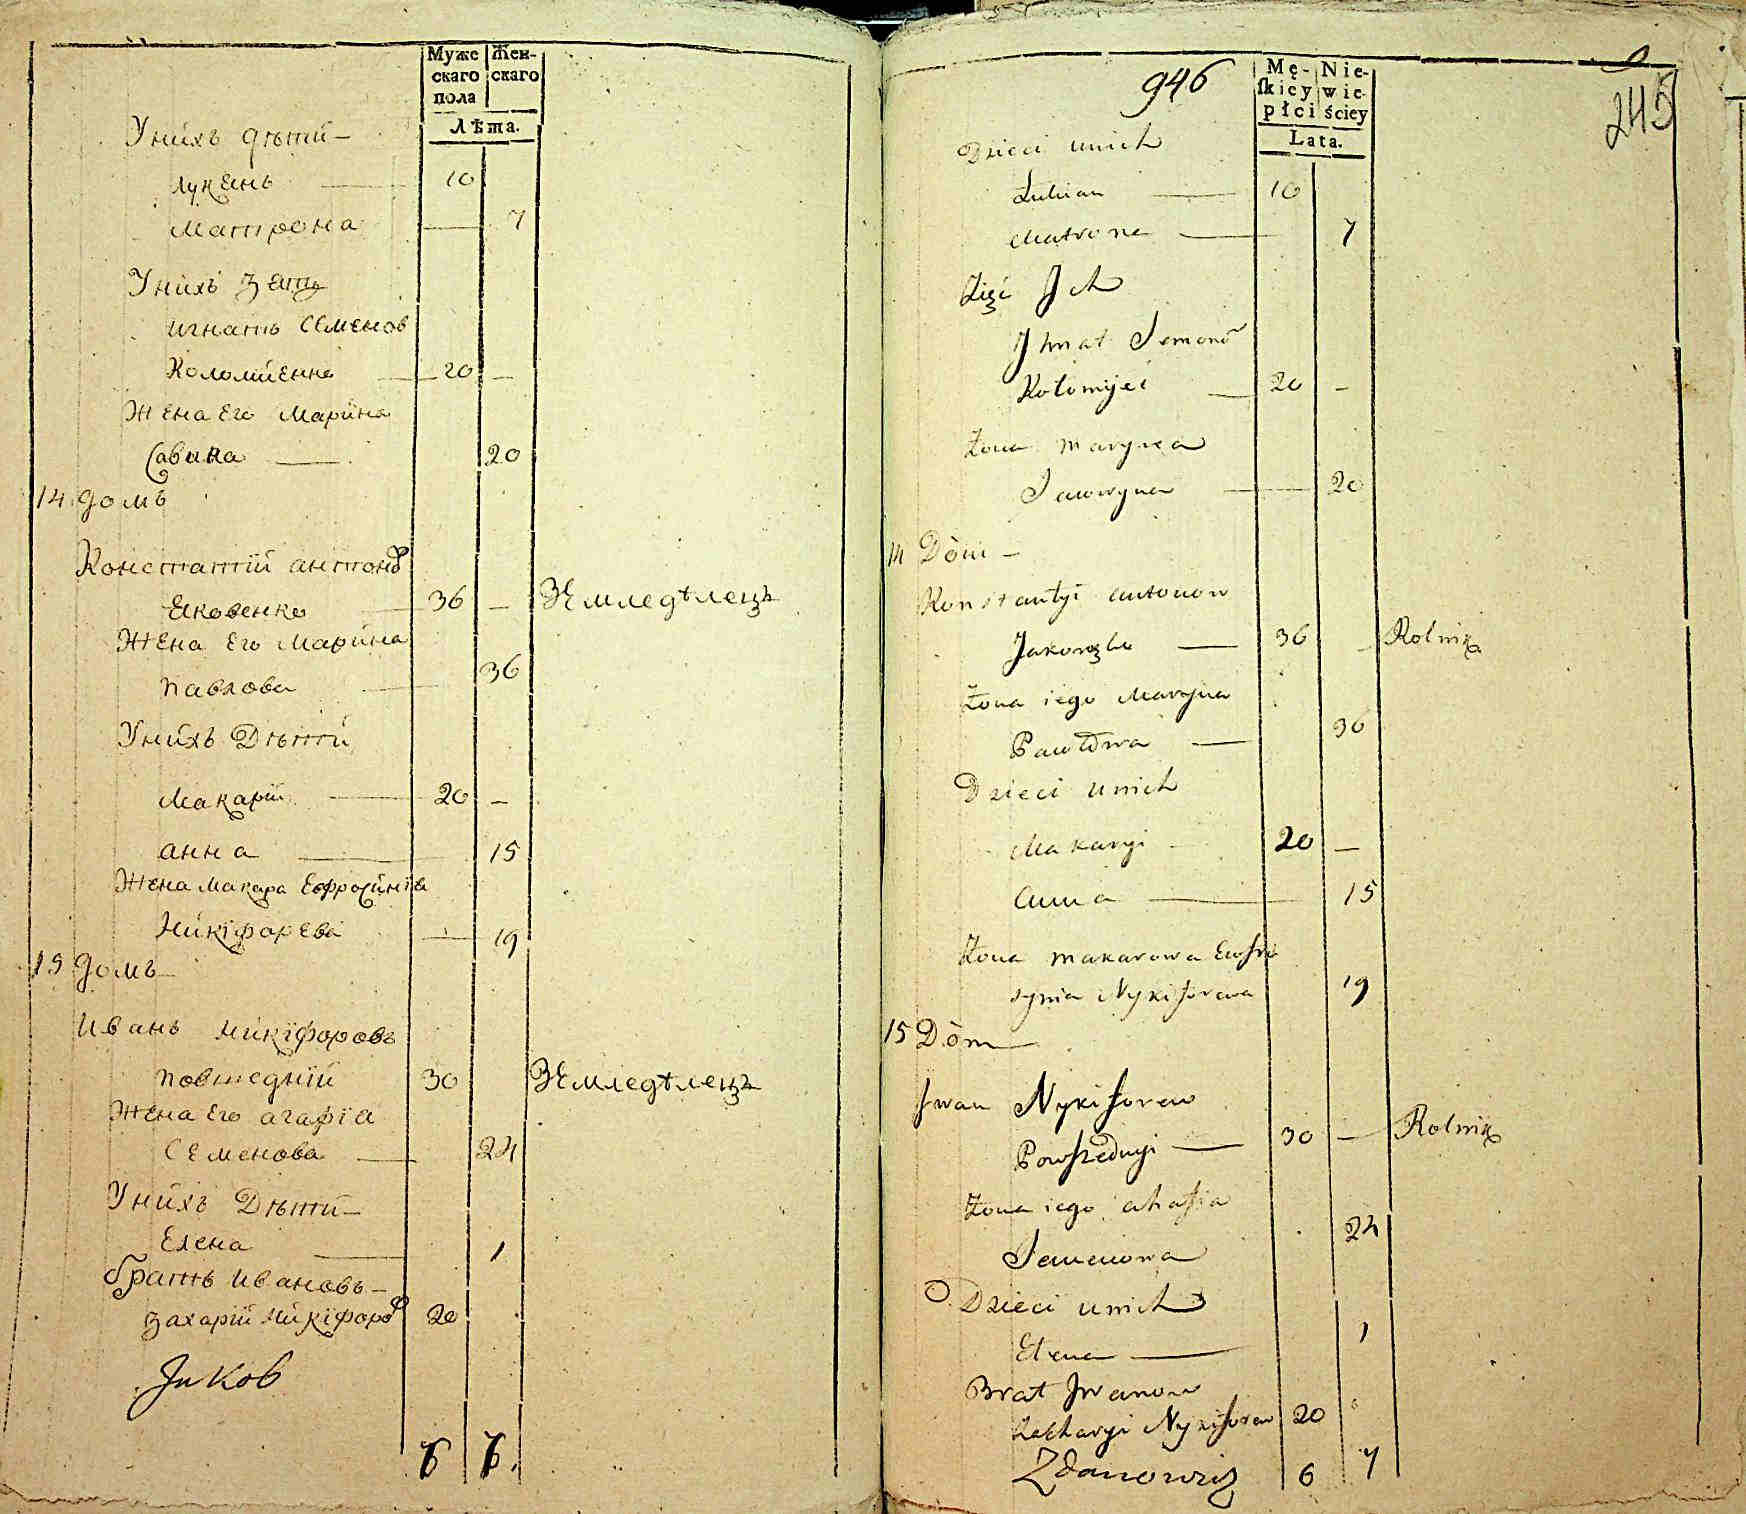 Муже
скаго
пола
Жен-
скаго
Лѣта.
Унихъ дѣтй
Лукянъ 10
Матрона 7
Унихъ Зять
Игнатъ Семенов
Коломйенко 20
Жена Его Марйна
Савина 20
14 домъ
Константїй антонов
Яковенко 36 Землeдѣлецъ
Жена Его Марйна
Павлова 36
Унихъ Дѣтй
Макарїй 20
анна 15
Жена Макара Ефросйнїа
Нйкїфорева 19
15 домъ
Иванъ Нйкїфоровъ
Повшеднїй 30 Землeдѣлецъ
Жена Его агафїа
Семенова 24
Унихъ Дѣтй
Елена 1
братъ Ивановъ
Захарїй Нйкїфоров 20
6
946
245
Mę-
skiey
płci
Nie-
wie-
ściey
Lata.
Dzieci unich
Łukian 10
Matrona 7
Zięć Ich
Ihnat Semonow
Kołomijeć 20
Żona Maryna
Sawwyna 20
14 Dòm
Konstantyi antonow
Jakowęko 36 Rolnik
Żona iego Maryna
Pawłowa 36
Dzieci unich
Makaryi 20
Anna 15
Żona makarowa Eufro
synia Nykiforewa 19
15 Dòm
Iwan Nykiforew
Powszednyi 30 Rolnik
Żona iego ahafia
Semenowa 24
Dzieci unich
Elena 1
Brat Iwanow
Zacharyi Nykiforew 20
Zdanowicz 6 7